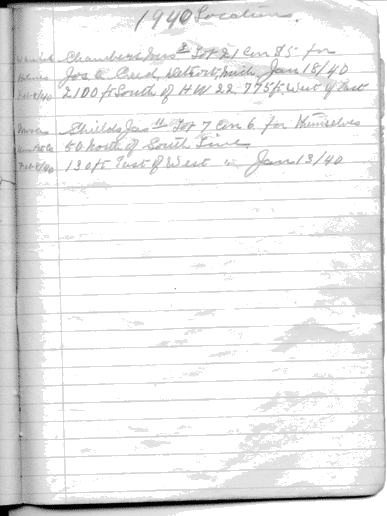 1940 Location.
Chambers Mrs #2 Lot 21 Con S5 for
Jos. A. Creed, Detroit, Mich, Jan 18/40
2100 ft South of HW 22. 775 ft West of East
Shields Jas #1 Lot 7 Con 6. for themselves
50 North of South Line
130 ft East of West " Jan 13/40